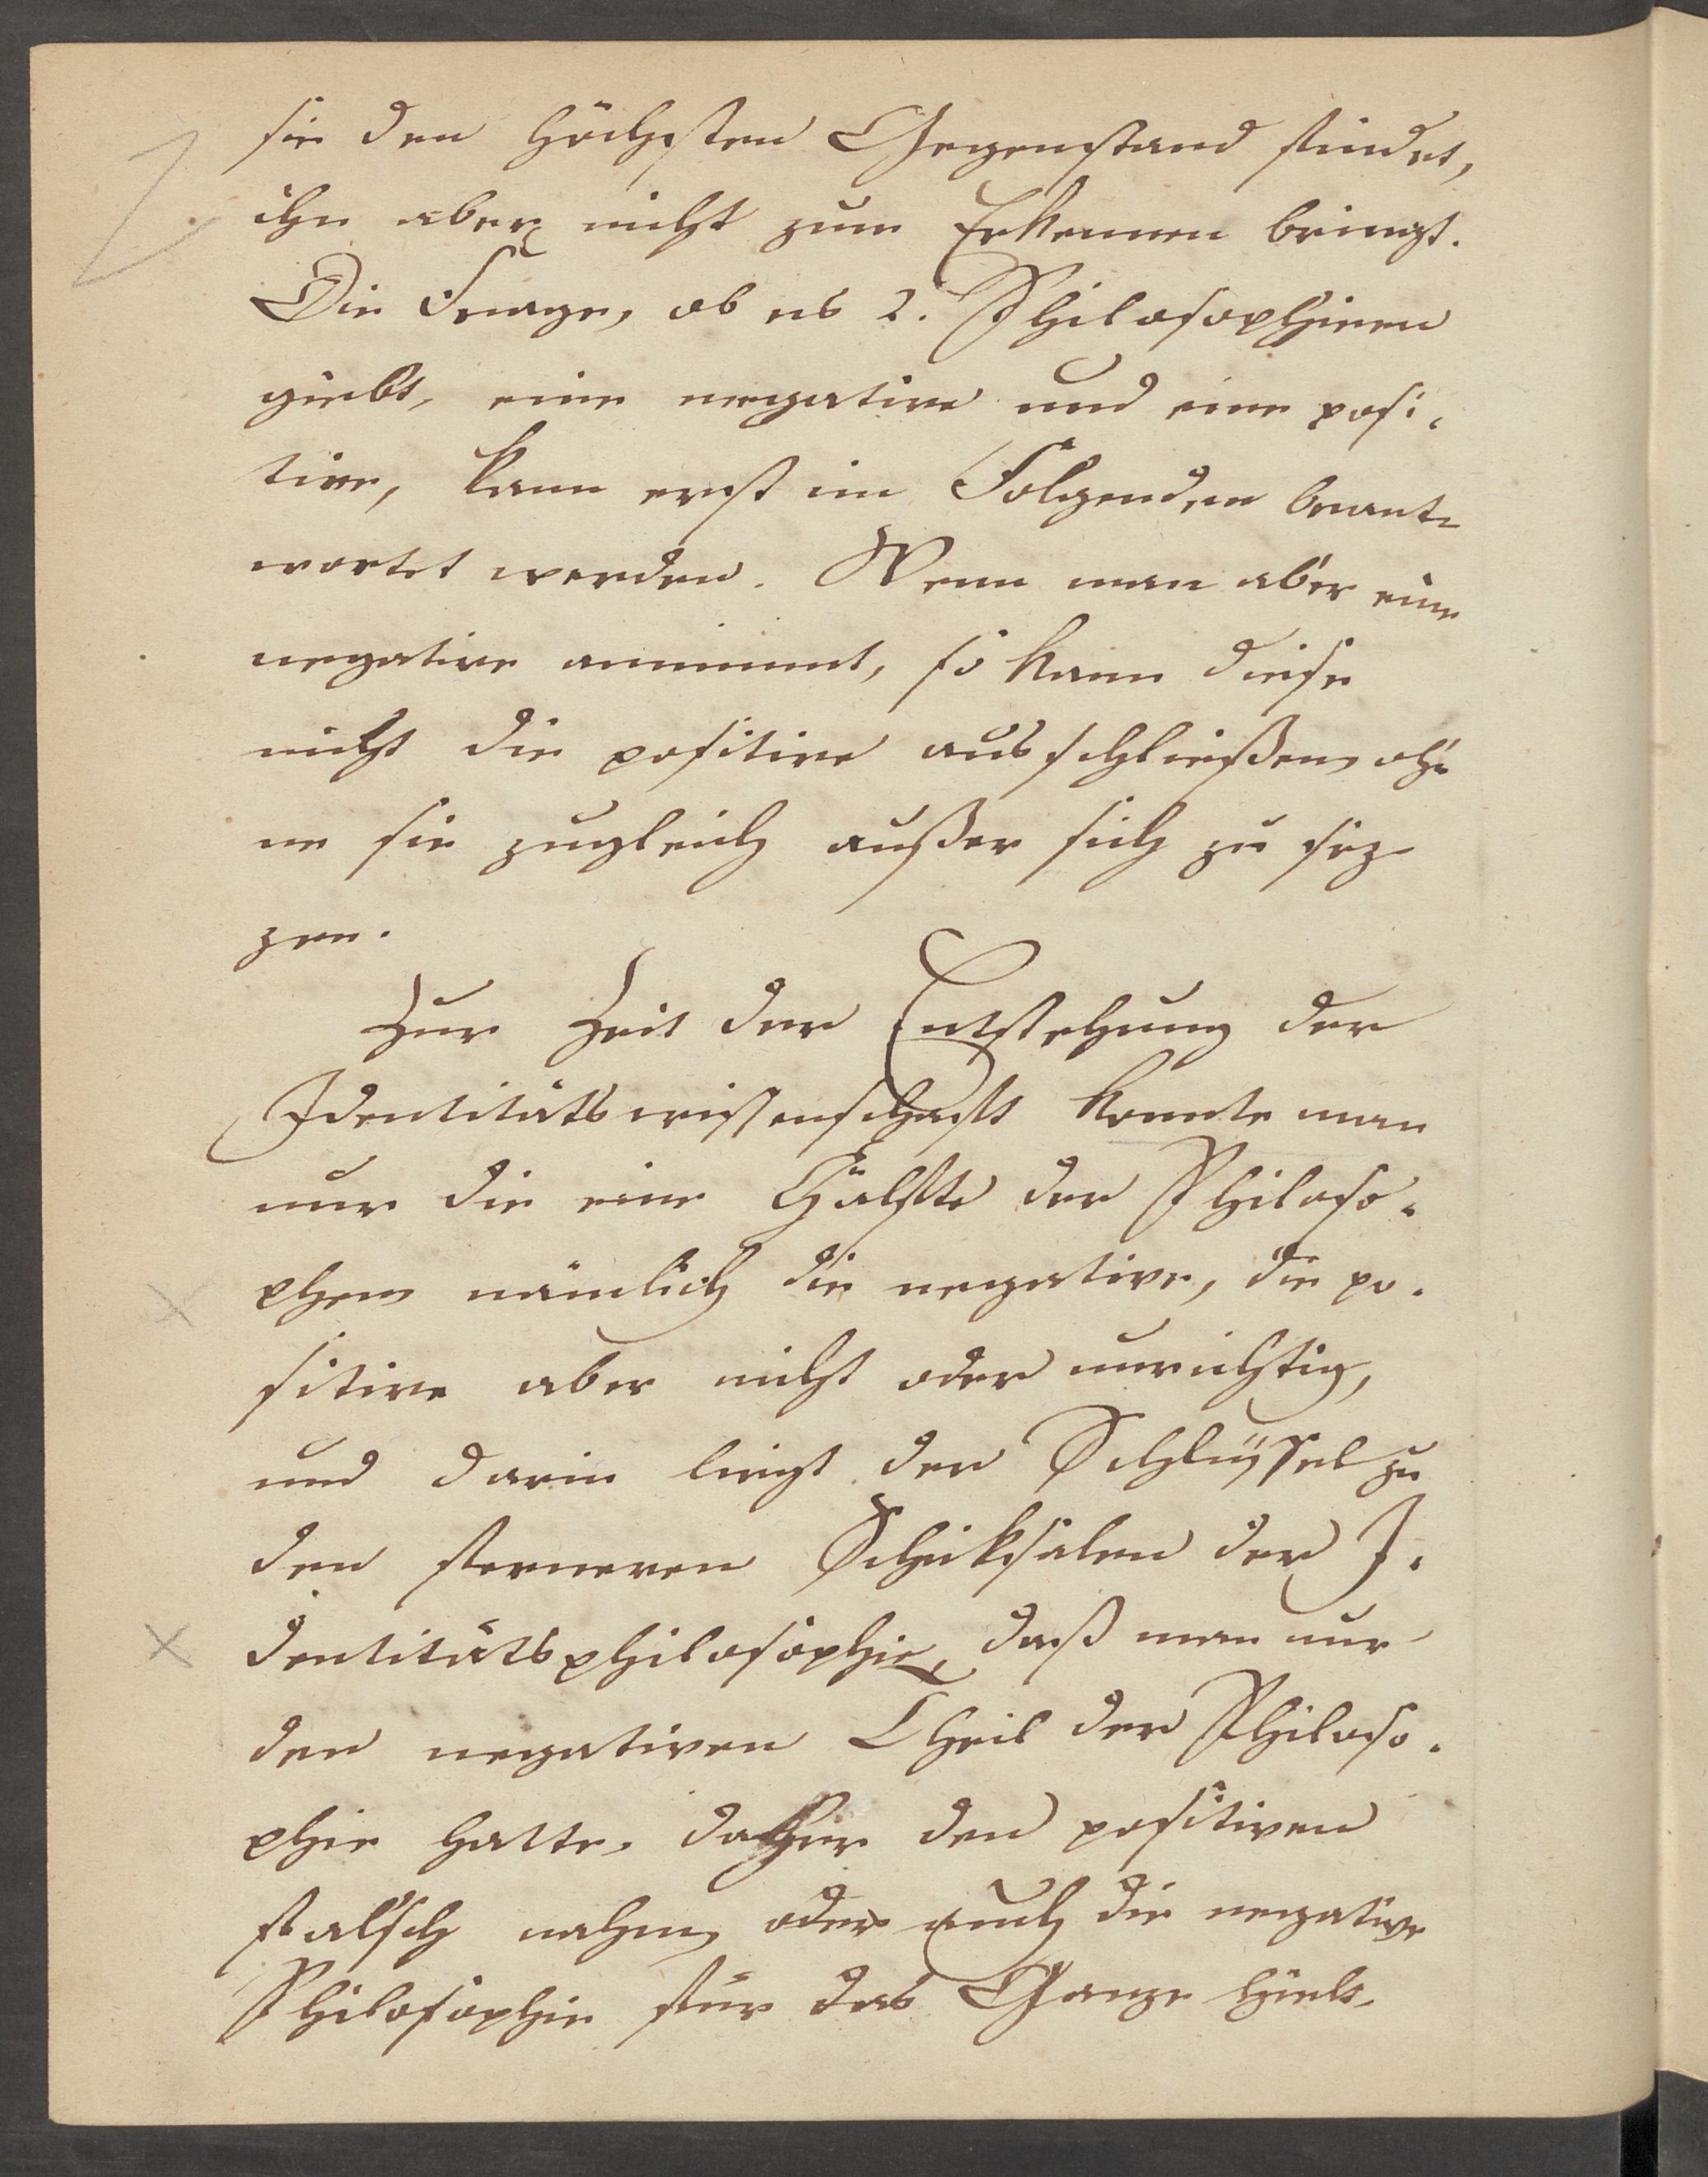 sie den höchsten Gegenstand findet,
ihn aber nicht zum Erkennen bringt.
Die Frage, ob es 2. Philosophieen
giebt, eine negative und eine posi-
tive, kann erst im Folgenden beant-
wortet werden. Wenn man aber eine
negative annimmt, so kann diese
nicht die positive ausschließen, oh-
ne sie zugleich außer sich zu sez-
zen.
Zur Zeit der Entstehung der
Identitätswissenschaft kannte man
nur die eine Hälfte der Philoso-
phen, nämlich die negative, die po-
sitive aber nicht oder unrichtig,
und darin liegt der Schlüssel zu
den ferneren Schiksalen der I-
dentitätsphilosophie, daß man nur
den negativen Theil der Philoso-
phie hatte, daher den positiven
falsch nahm, oder auch die negative
Philosophie für das Ganze hielt.